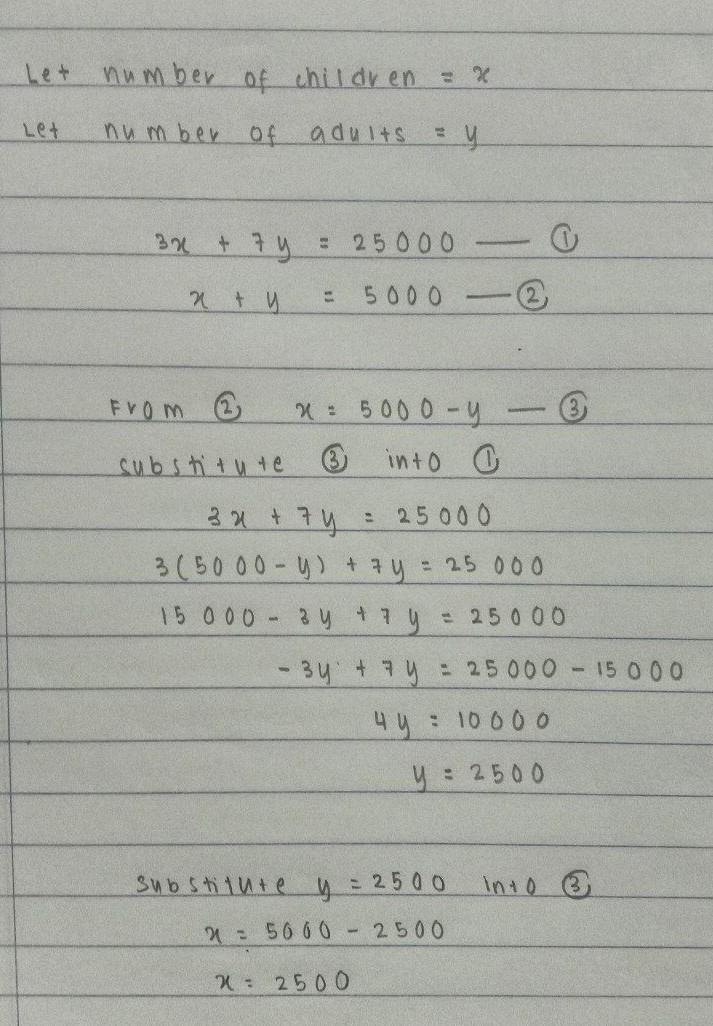 Let number of children = x
Let number of adults = y
3x + 7y = 25000 — ①
x + y = 5000 — ②
From ② x = 5000 - y — ③
substitute ③ into ①
3x + 7y = 25000
3(5000 - y) + 7y = 25 000
15 000 - 3y + 7y = 25000
- 3y + 7y = 25000 - 15000
4y = 10000
y = 2500
substitute y = 2500 into ③
x = 5000 - 2500
x = 2500